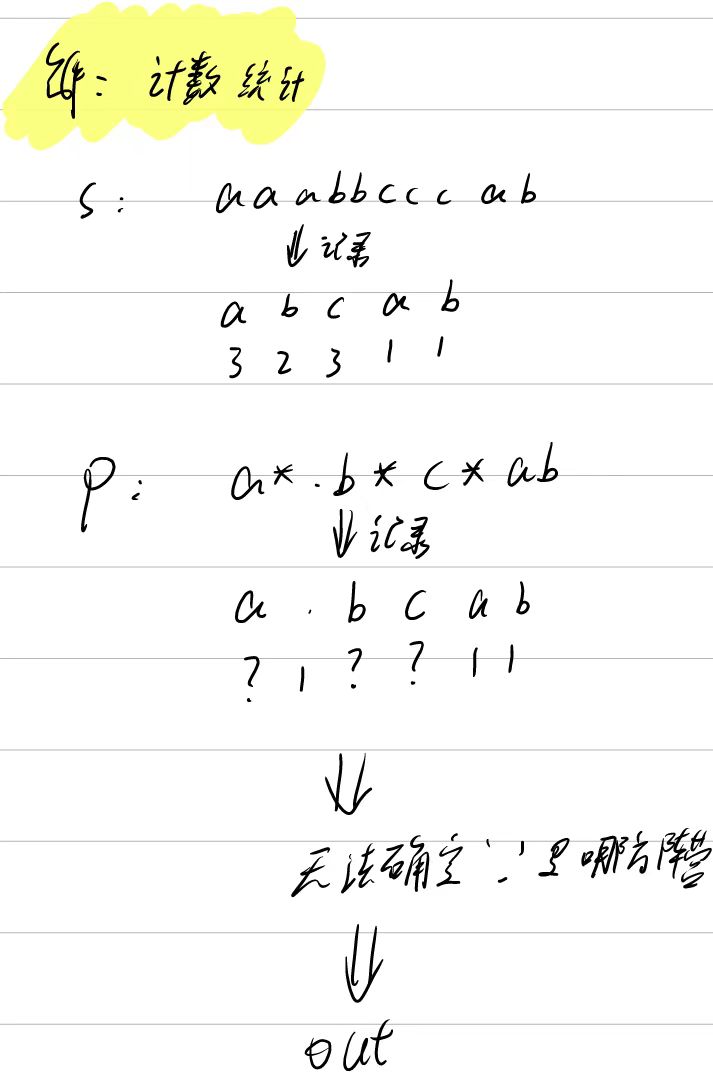 计数统计
s: aaabbccc ab
记录
a b c a b
3 2 3 1 1
p: a*.b*c*ab
记录
a . b c a b
? 1 ? ? 1 1
无法确定'.'是哪方阵营
out